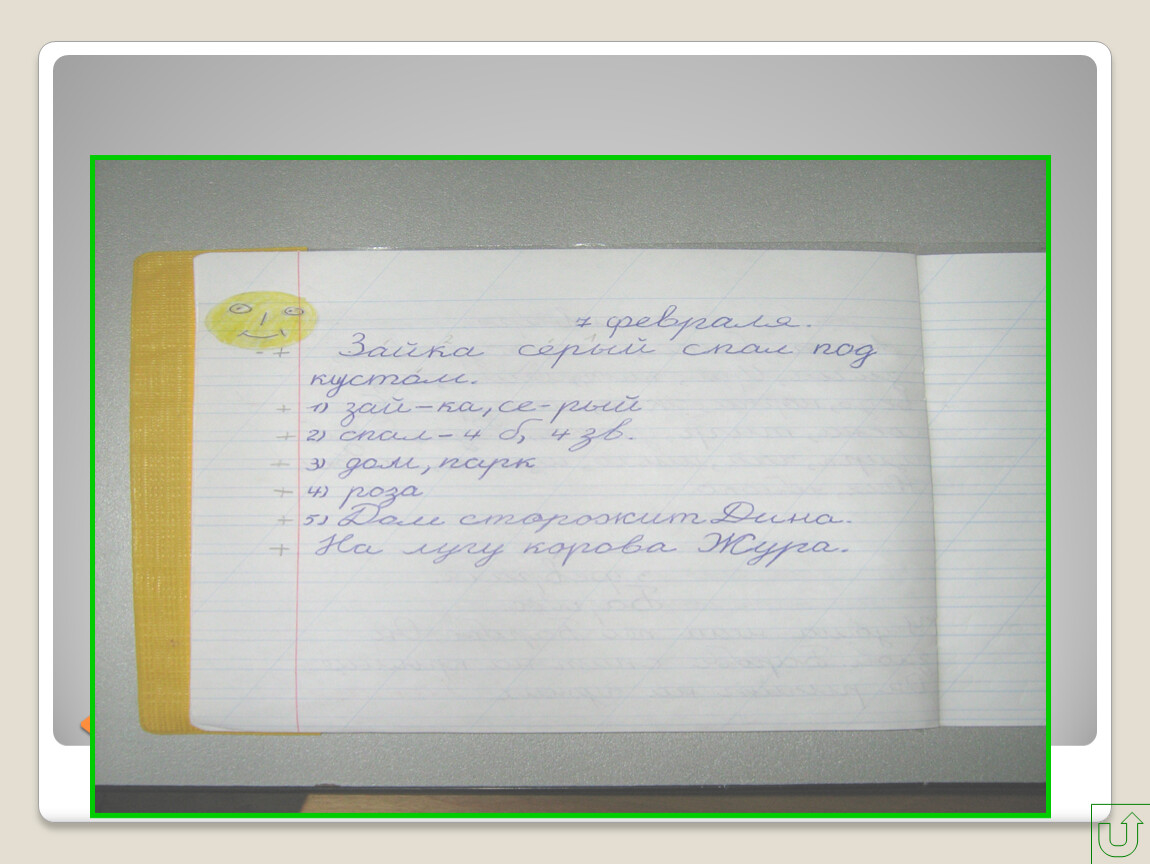 7 февраля.
-+ Зайка серый спал под
кустом.
+ 1) зай-ка, се-рый
+ 2) спал - 4 б, 4 зв.
+ 3) дом, парк
+ 4) роза
+ 5) Дом сторожит Дина.
+ На лугу корова Жура.